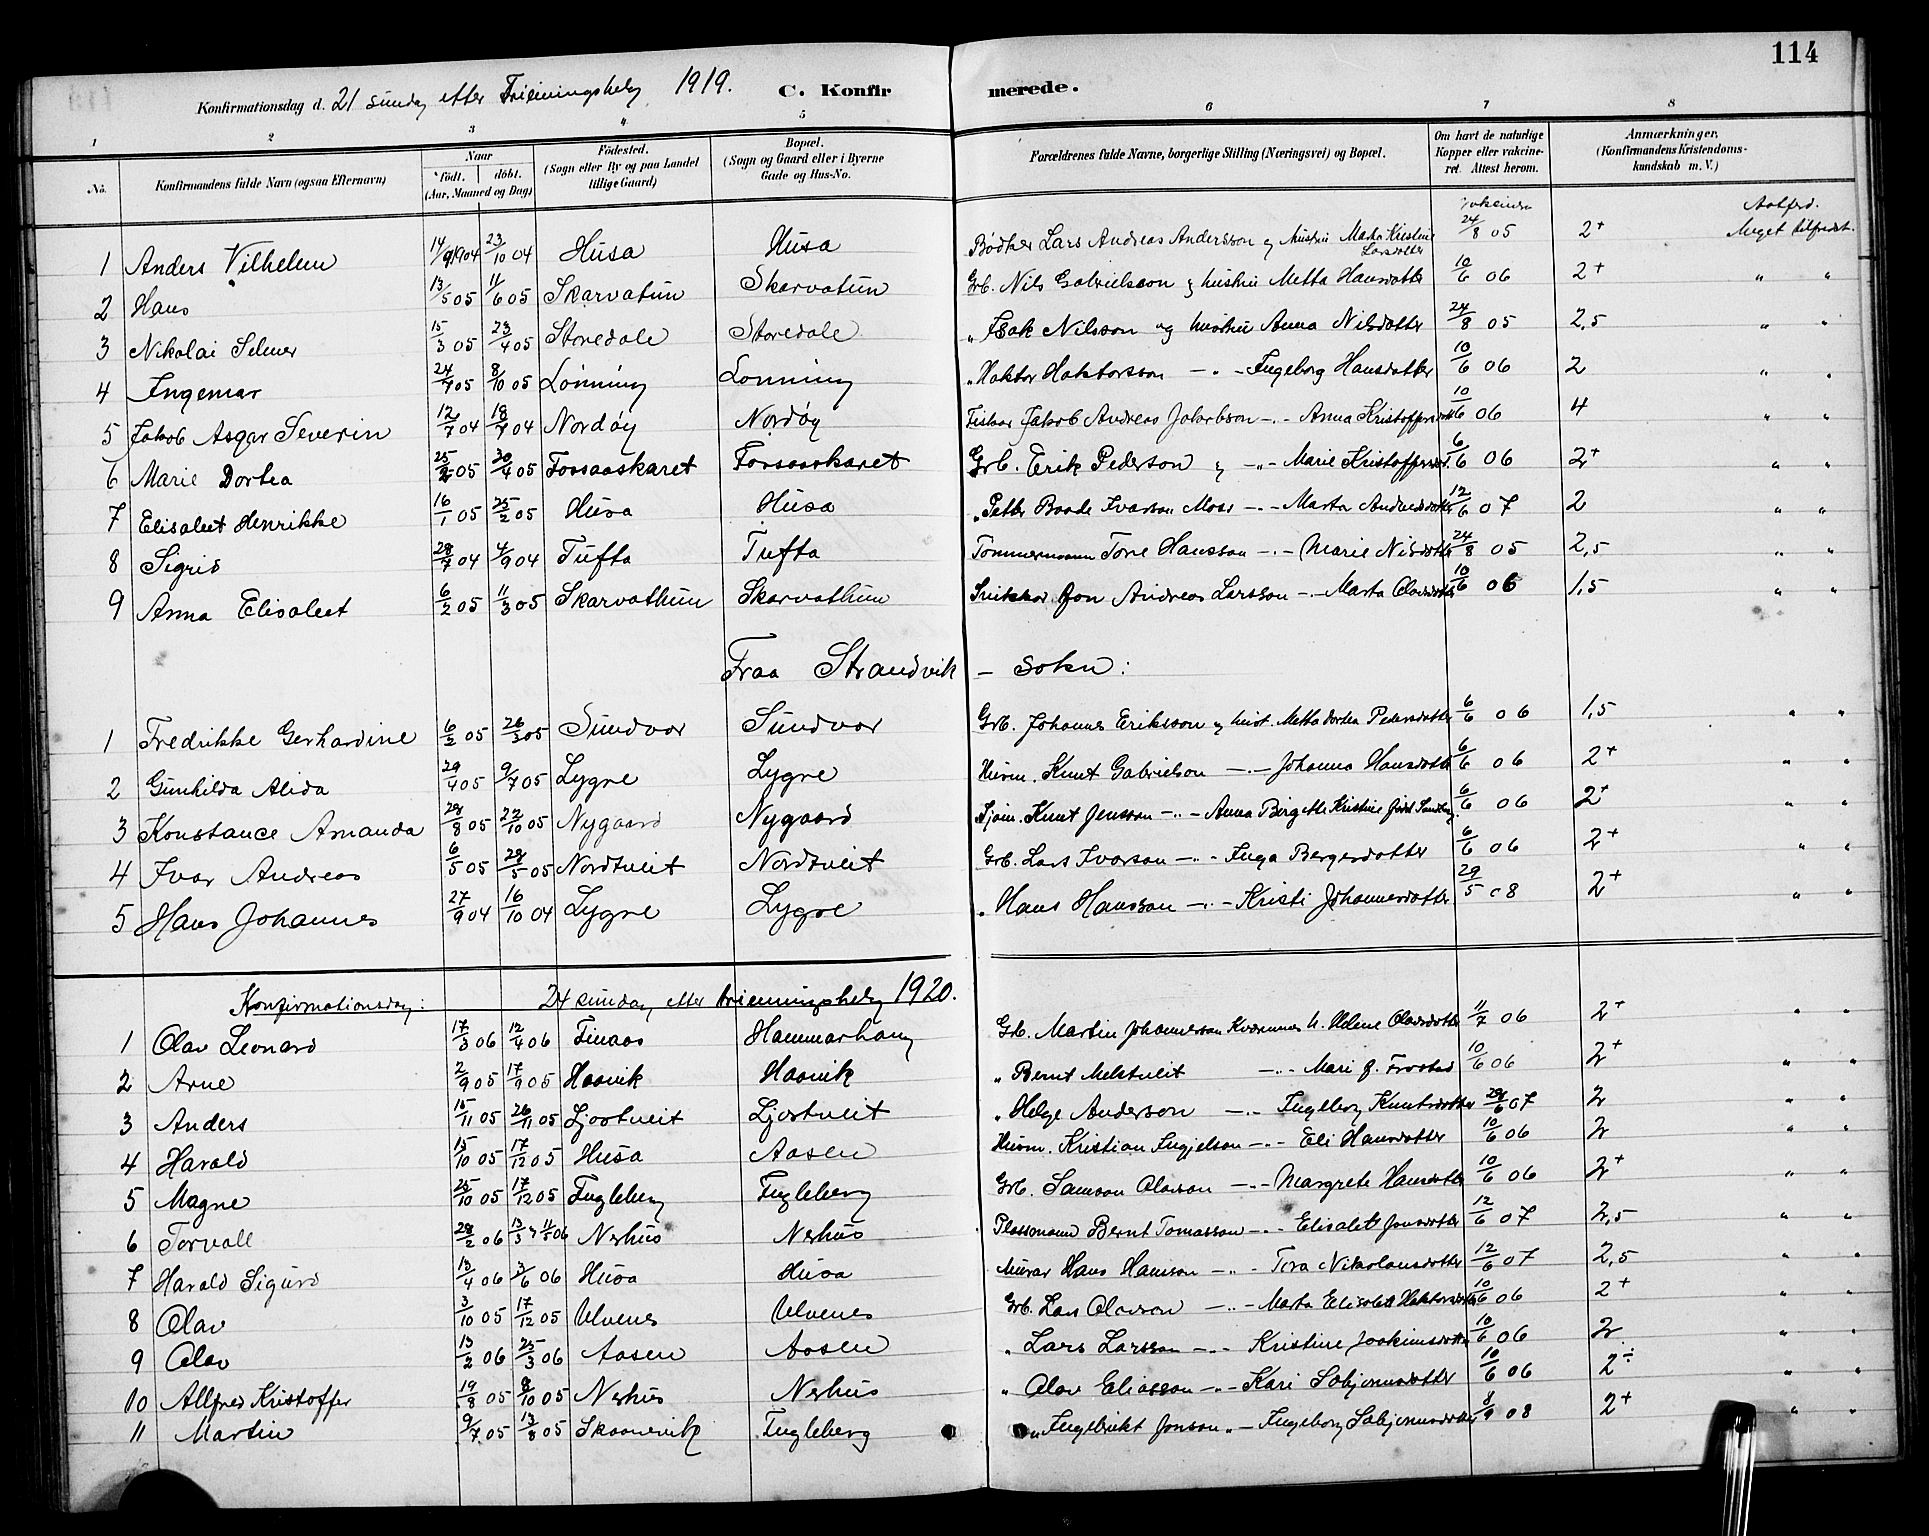 114
Konfirmationsdag d. 21 sundag etter Trieiningshelg 1919. C. Konfirmerede.
1 2 3 4 5 6 7 8
No. Konfirmandens fulde Navn (ogsaa Efternavn) Naar födt. döbt. (Aar, Maaned og Dag) Födested. (Sogn eller By og paa Landet tillige Gaard) Bopæl. (Sogn og Gaard eller i Byerne Gade og Hus-No. Forældrenes fulde Navne, borgerlige Stilling (Næringsvei) og Bopæl. Om havt de naturlige Kopper eller vakcineret. Attest herom. Anmærkninger. (Konfirmandens Kristendomskundskab m. V.)
1 Anders Vilhelm 14/9 1904 23/10 04 Husa Husa Bødker Lars Andreas Andersson og hustru Marta Kristine Larsdotter 24/8 05 2+ Aatferd. Meget tilfredst.
2 Hans 13/5 05 11/6 05 Skarvatun Skarvatun Grb. Nils Gabrielsson og hustru Metta Hansdotter 10/6 06 2+ " "
3 Nikolai Selmer 15/3 05 23/4 05 Storedale Storedale " Isak Nilsson og hustru Anna Nilsdotter 24/8 05 2,5 " "
4 Ingemar 24/7 05 8/10 05 Lønning Lonning " Haktor Haktorsson -"- Ingeborg Hansdotter 10/6 06 2 " "
5 Jakob Asgar Severin 12/7 04 18/9 04 Nordøy Nordøy Fiskar Jakob Andreas Jakobson -"- Anna Kristoffersdott 10/6 06 4 " "
6 Marie Dortea 25/2 05 30/4 05 Fossaaskaret Fossaaskaret Grb. Erik Pederson og -"- Marie Kristoffersd. 6/6 06 2+ " "
7 Elisabet Henrikke 16/1 05 25/2 05 Husa Husa " Petter Baade Ivarson Moss -"- Marta Andreasdotter 12/6 07 2 " "
8 Sigrid 28/7 04 4/9 04 Tufta Tufta Tömmermann Tore Hansson -"- Marie Nilsdotter 24/8 05 2,5 " "
9 Anna Elisabet 6/2 05 11/3 05 Skarvathun Skarvathun Snikkar Jon Andreas Larsson -"- Marta Olavsdotter 10/6 06 1,5 " "
Fraa Strandvik - Sokn:
1 Fredrikke Gerhardine 6/2 05 26/3 05 Sundvor Sundvor Grb. Johannes Eriksson og hust. Metta Dortea Petersdotter 6/6 06 1,5 " "
2 Gunhilda Alida 29/4 05 9/7 05 Lygre Lygre Husm. Knut Gabrielson -"- Johanna Hansdotter 6/6 06 2+ " "
3 Konstance Amanda 28/8 05 22/10 05 Nygaard Nygaard Sjöm. Knut Jensson -"- Anna Birgette Kristine 6/6 06 2+ " "
4 Ivar Andreas 6/5 05 28/5 05 Nordtveit Nordtveit Grb. Lars Ivarson -"- Inga Bergersdotter 6/6 06 2+ " "
5 Hans Johannes 27/9 04 16/10 04 Lygre Lygre " Hans Hansson -"- Kristi Johannesdotter 29/5 08 2+ " "
Konfirmationsdag: 24 sundag etter trieiningshelg 1920.
1 Olav Leonard 17/3 06 12/4 06 Tinaas Hammarhaug Grb. Martin Johannesson Kvamme h. Helene Olavsdotter 11/7 06 2+ " "
2 Arne 2/9 05 17/9 05 Haavik Haavik " Bernt Mehtveit -"- Mari f. Frostad 10/6 06 2+ " "
3 Anders 15/11 05 26/11 05 Ljostveit Ljostveit " Helge Anderson -"- Ingeborg Knutsdotter 29/6 07 2 " "
4 Harald 15/10 05 17/12 05 Husa Aasen Husm. Kristian Ingjelson -"- Eli Hansdotter 10/6 06 2 " "
5 Magne 25/10 05 17/12 05 Fugleberg Fugleberg Grb. Samson Olavson -"- Margrete Hansdotter 10/6 06 2+ " "
6 Torvall 28/2 06 13/3 11/5 06 Nerhus Nerhus Plassmann Bernt Tomasson -"- Elisabet Jonsdotter 12/6 07 2,5 " "
7 Harald Sigurd 13/4 06 3/6 06 Husa Husa Murar Hans Hansson -"- Tora Nikolausdotter 12/6 07 2,5 " "
8 Olav 3/10 05 17/12 05 Ulvenes Ulvenes Grb. Lars Olavson -"- Marta Elisabet Haktorsdotter 10/6 06 2+ " "
9 Olav 13/2 06 25/3 06 Aasen Aasen " Lars Larsson -"- Kristine Joakimsdotter 10/6 06 2 " "
10 Allfred Kristoffer 19/8 05 8/10 05 Nerhus Nerhus " Olav Eliasson -"- Kari Sobjørnsdotter 10/6 06 2÷ " "
11 Martin 9/7 05 13/8 05 Skaanevik Fugleberg " Ingebrikt Jonson " - Ingeborg Sobjørnsdotter 8/9 08 2+ " "